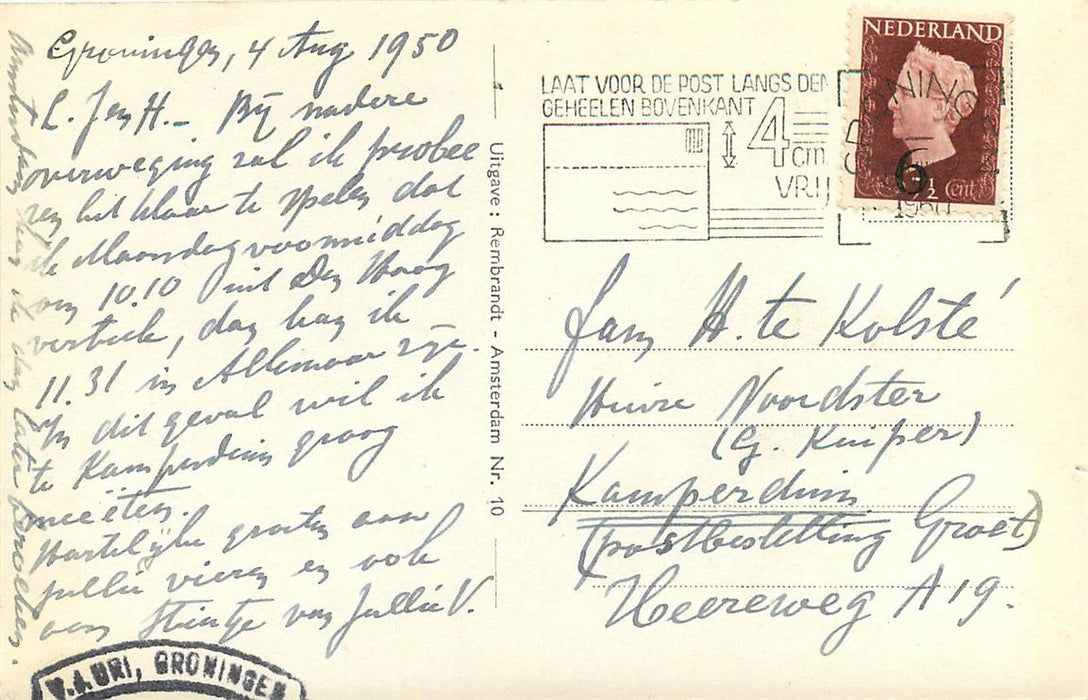 Groningen, 4 Aug 1950
L. J en H. – Bij nadere
overweging zal ik probee
ren het klaar te spelen dat
ik Maandagvoormiddag
om 10.10 uit Den Haag
vertrek, dan kan ik
11.31 in Alkmaar zijn.
In dit geval wil ik
te Kamperduin graag
mee eten.
Hartelijke groeten aan
jullie vieren en ook
aan Stientje van Jullie V.
kan ik dan later
W.J.URI, GRONINGEN
Uitgave: Rembrandt - Amsterdam Nr. 10
LAAT VOOR DE POST LANGS DEN
GEHEELEN BOVENKANT
4 cm
VRIJ
GRONINGEN
1950
NEDERLAND
6
7½ Cent
Fam H. te Kolsté
Huize Noordster
(G. Kuiper)
Kamperduin
(postbestelling Groet)
Heereweg A 19.